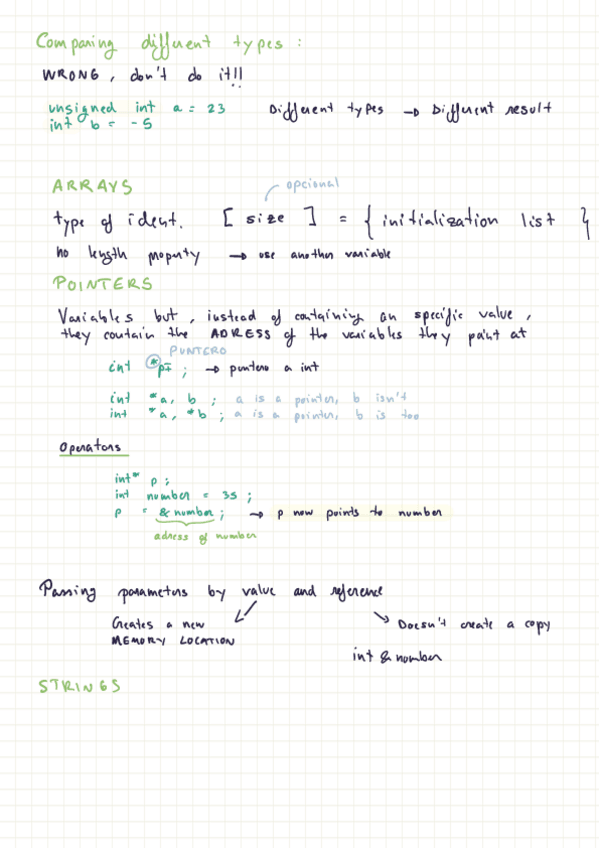 Comparing different types :
WRONG, don't do it!!
unsigned int a = 23 Different types → Different result
int b = -5
ARRAYS
opcional
type of ident. [ size ] = { initialization list }
no length property → use another variable
POINTERS
Variables but, instead of containing an specific value,
they contain the ADRESS of the variables they point at
PUNTERO
int *pt ; → puntero a int
int *a, b ; a is a pointer, b isn't
int *a, *b ; a is a pointer, b is too
Operators
int* p ;
int number = 35 ;
p = & number ; → p now points to number
adress of number
Passing parameters by value and reference
Creates a new Doesn't create a copy
MEMORY LOCATION
int & number
STRINGS